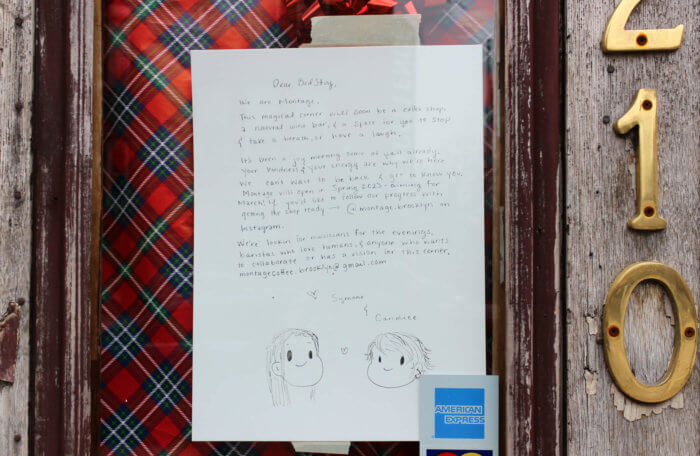 Dear Bed Stuy,
We are Montage.
This magical corner will soon be a coffee shop,
a natural wine bar, & a space for you to stop
& take a breath, or have a laugh.
It's been a joy meeting some of y'all already.
Your kindness & your energy are why we're here.
We can't wait to be back & get to know you.
Montage will open in Spring 2023 - aiming for
March! If you'd like to follow our progress with
getting the shop ready → @montage.brooklyn on
Instagram.
We're lookin for musicians for the evenings,
baristas who love humans, & anyone who wants
to collaborate or has a vision for this corner.
montagecoffee.brooklyn@gmail.com
Symone
&
Candice
AMERICAN
EXPRESS
2
1
0